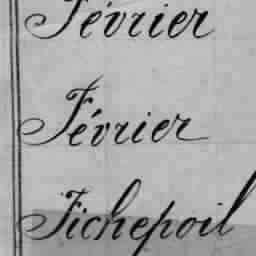 Février
Février
Fichepoil